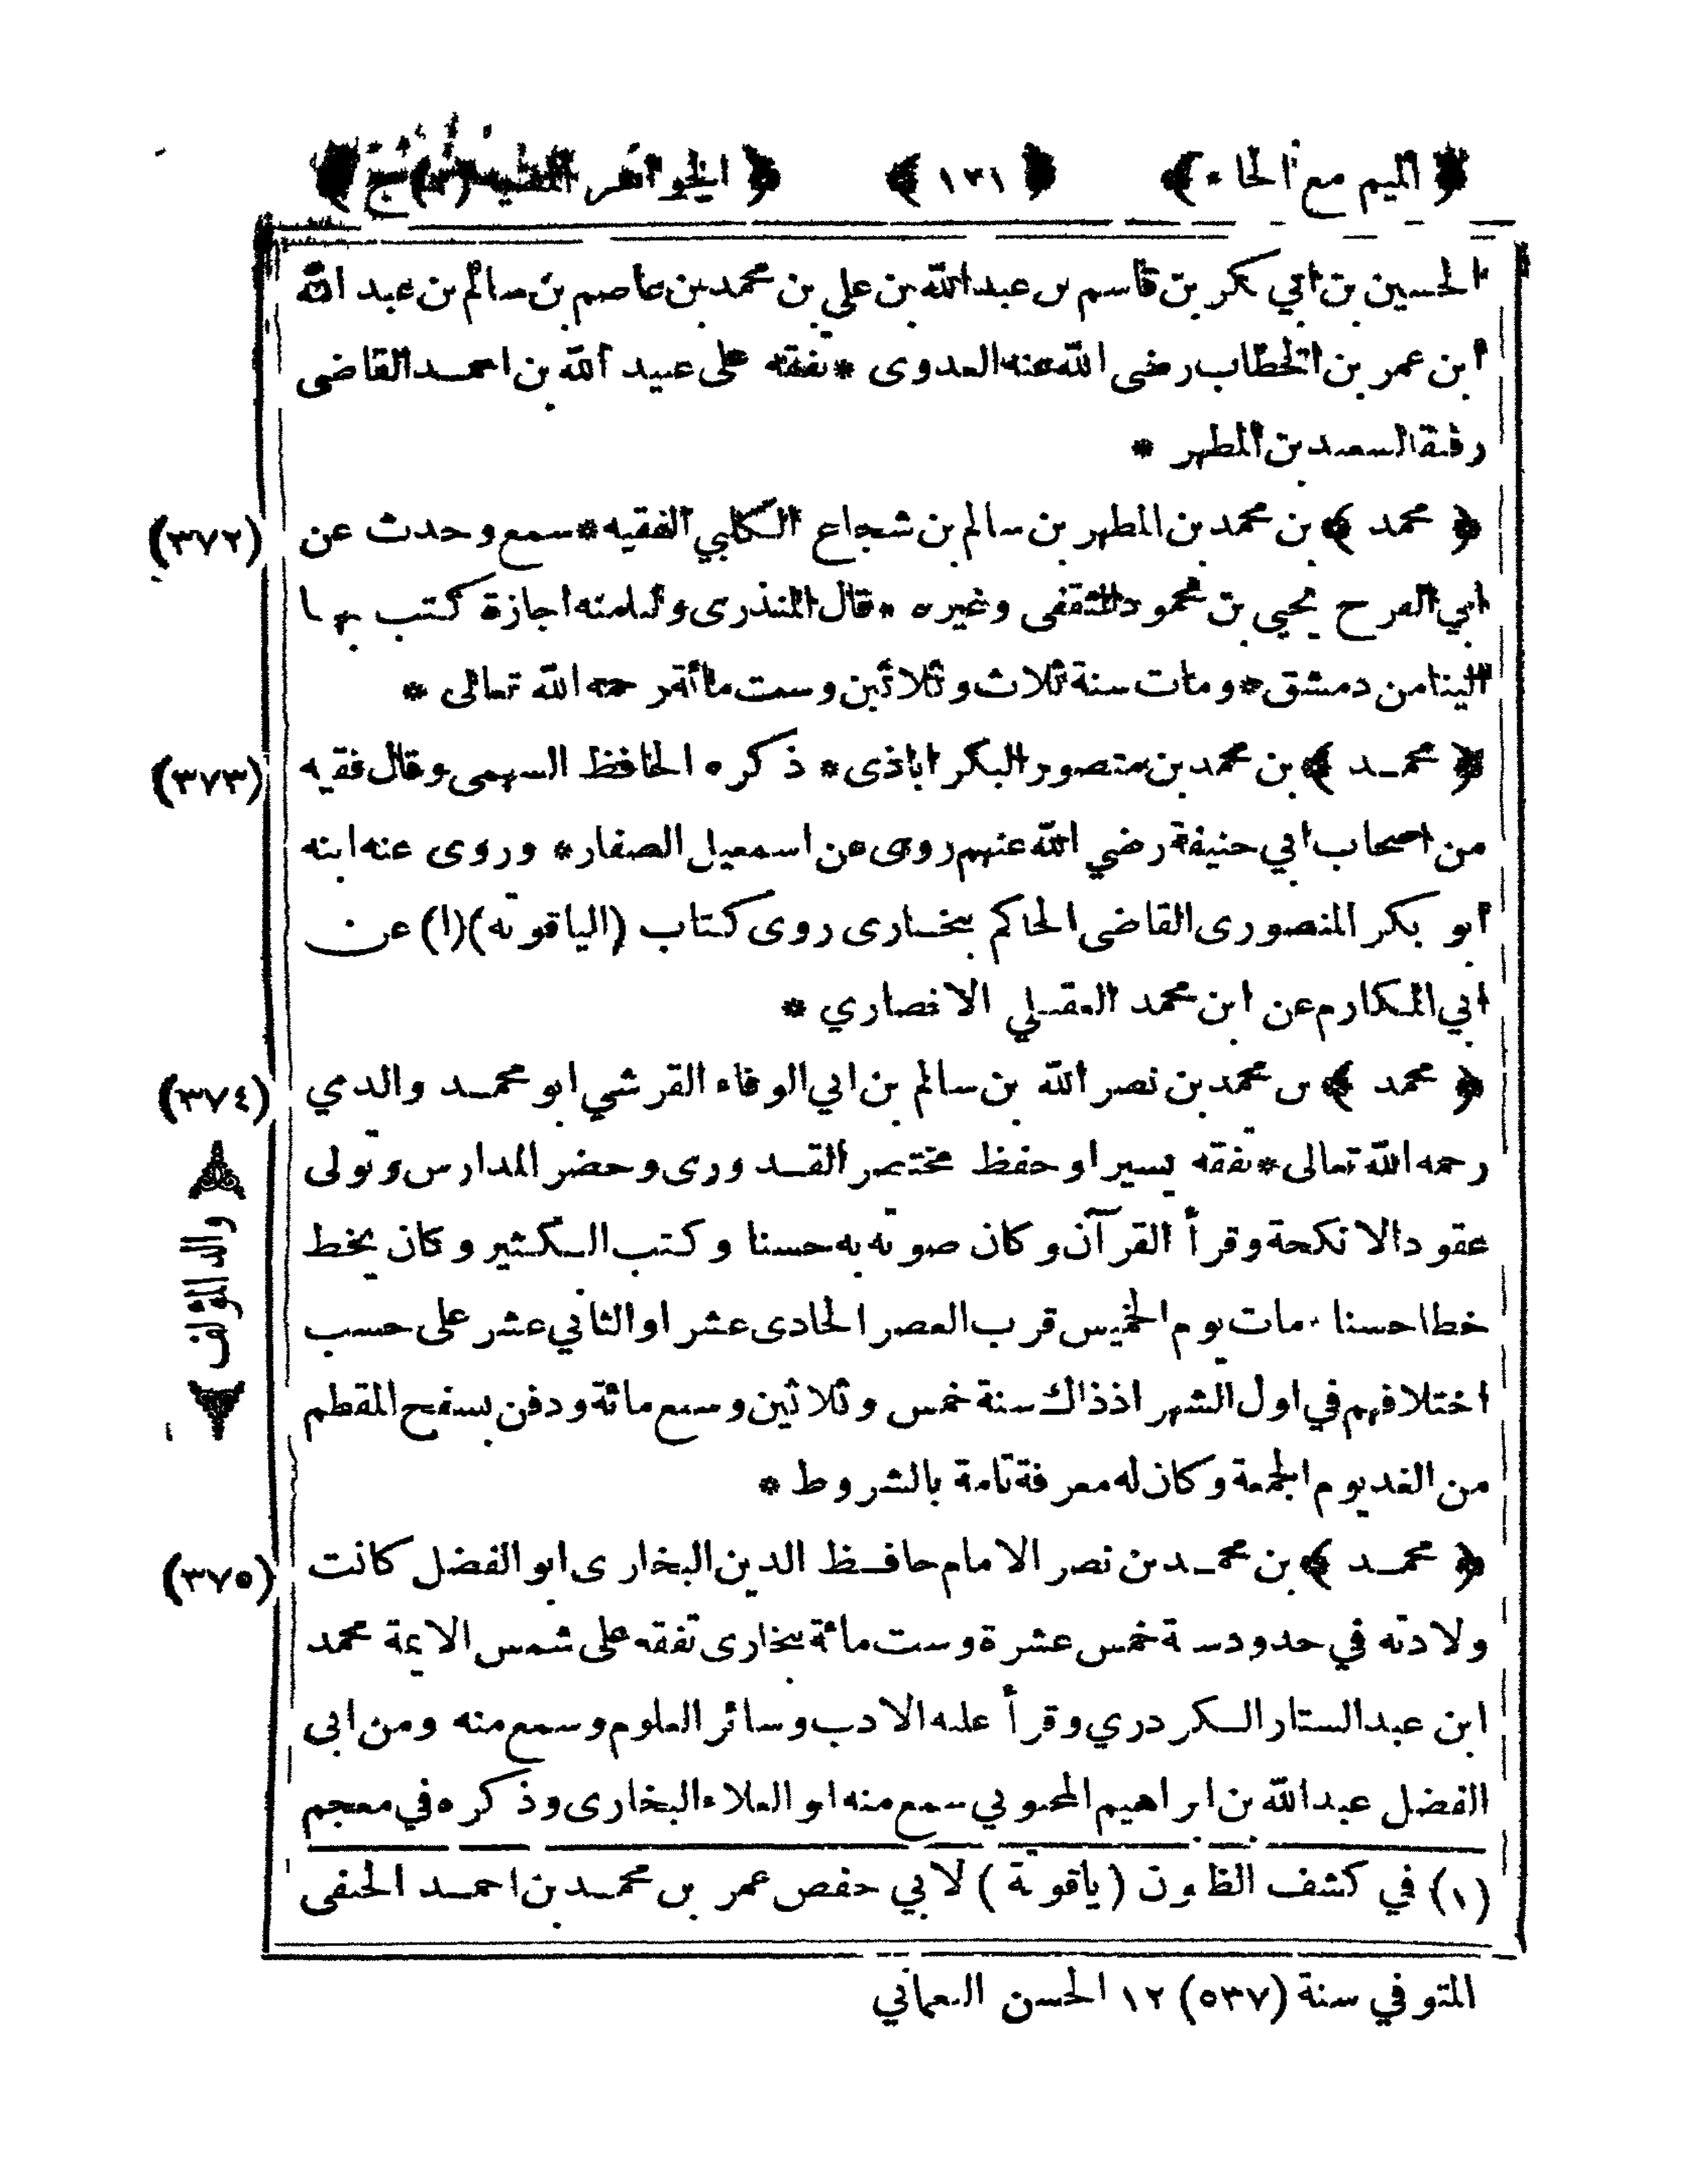 ﴿ الميم مع الحاء ﴾ ﴿ ١٢١ ﴾ ﴿ الجواهر المضيه (٢) ج ﴾
الحسين بن ابي بكر بن قاسم بن عبدالله بن علي بن محمد بن عاصم بن سالم بن عبد الله
ابن عمر بن الخطاب رضى الله عنه العدوى * تفقه على عبيد الله بن احمد القاضى
رفقة السعد بن المطهر *
(٣٧٢) ﴿ محمد ﴾ بن محمد بن المطهر بن سالم بن شجاع الكلبي الفقيه * سمع وحدث عن
ابي الفرح يحيى بن محمود الثقفى وغيره * قال المنذرى ولنا منه اجازة كتب بها
الينا من دمشق * ومات سنة ثلاث وثلاثين وست مائة رحمه الله تعالى *
(٣٧٣) ﴿ محمد ﴾ بن محمد بن منصور البكر اباذى * ذكره الحافظ السهمى وقال فقيه
من اصحاب ابي حنيفة رضي الله عنهم روى عن اسمعيل الصفار * وروى عنه ابنه
ابو بكر المنصورى القاضى الحاكم ببخارى روى كتاب (الياقوته) (١) عن
ابي المكارم عن ابن محمد العقيلي الانصاري *
(٣٧٤) ﴿ محمد ﴾ بن محمد بن نصر الله بن سالم بن ابي الوفاء القرشي ابو محمد والدي
رحمه الله تعالى * تفقه يسيرا وحفظ مختصر القدورى وحضر المدارس وتولى
عقود الانكحة وقرأ القرآن وكان صوته به حسنا وكتب الكثير وكان يخط
خطا حسنا · مات يوم الخميس قرب العصر الحادى عشر او الثاني عشر على حسب
اختلافهم في اول الشهر اذ ذاك سنة خمس وثلاثين وسبع مائة ودفن بسفح المقطم
من الغد يوم الجمعة وكان له معرفة تامة بالشروط *
﴿ والد المؤلف ﴾
(٣٧٥) ﴿ محمد ﴾ بن محمد بن نصر الامام حافظ الدين البخارى ابو الفضل كانت
ولادته في حدود سنة خمس عشرة وست مائة ببخارى تفقه على شمس الايمة محمد
ابن عبد الستار الكردري وقرأ عليه الادب وسائر العلوم وسمع منه ومن ابى
الفضل عبدالله بن ابراهيم المحبوبي سمع منه ابو العلاء البخارى وذكره في معجم
(١) في كشف الظنون (ياقوتة) لابي حفص عمر بن محمد بن احمد الحنفى
المتوفي سنة (٥٣٧) ١٢ الحسن النعماني